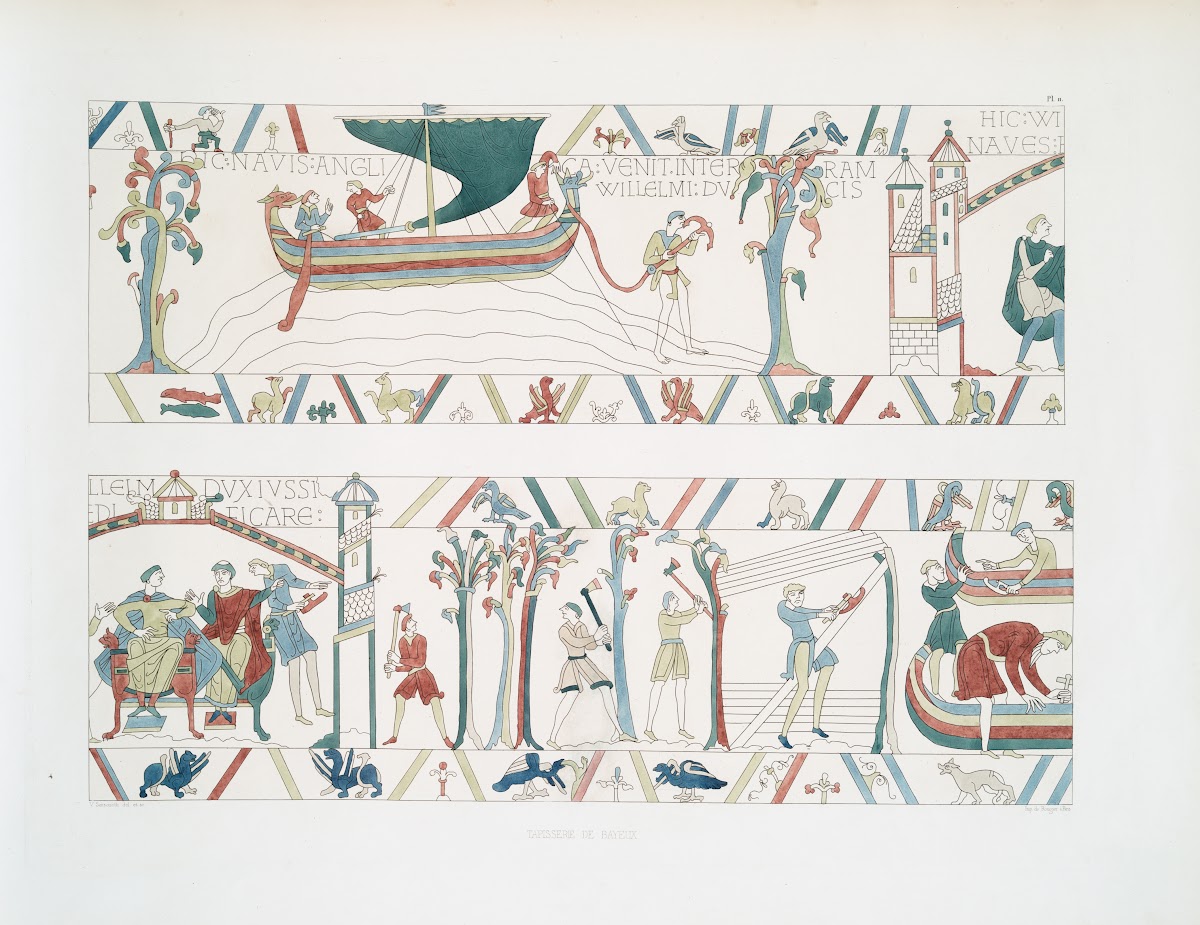 Pl. 11.
HIC: NAVIS: ANGLI CA: VENIT. INTER RAM
WILLELMI: DV CIS
HIC: WI
NAVES: E
LLELM DVXIVSSI
EDI FICARE:
TAPISSERIE DE BAYEUX